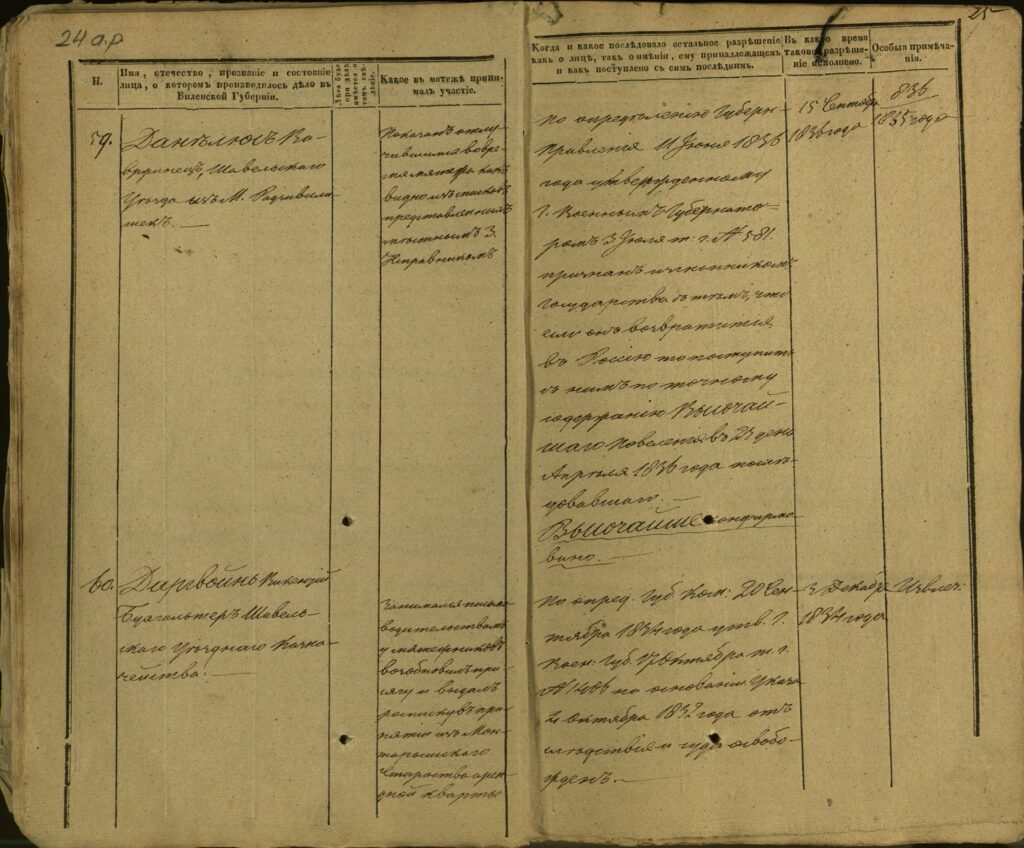 24 а.р
25
Н.
Имя, отчество, прозваніе и состояніе
лица, о которомъ производилось дѣло въ
Виленской Губерніи.
Какое въ мятежѣ прини-
малъ участіе.
Когда и какое послѣдовало остальное разрѣшеніе
какъ о лицѣ, такъ о имѣніи, ему принадлежащемъ
и как поступлено съ симъ послѣднимъ.
Въ какое время
таковое разрѣше-
ніе исполнено.
Особыя примѣча-
нія.
59.
Шавельскаго
Уѣзда изъ М. Радзивили-
шекъ.
Показанъ отлу-
чившимся во вре-
мя мятежа какъ
видно изъ списковъ
представленныхъ
мѣстнымъ З.
Исправникомъ
По опредѣленію Губерн.
Правленія 11 Іюня 1836
года утвержденному
г. Военнымъ Губернато-
ромъ 3 Іюля т. г. № 581.
признанъ измѣнникомъ
государства съ тѣмъ, что
если онъ возвратится
въ Россію то поступить
съ нимъ по точному
содержанію Высочай-
шаго Повеленія въ день
Апрѣля 1836 года послѣ-
довавшаго.
Высочайше конфирмо-
вано.
15 Сентябр
1836 года
836
1835 года
60.
Даргвойнъ Викентій
Бухгалтеръ Шавель-
скаго Уѣзднаго Казна-
чейства.
Занимался письмо
водительствомъ
у мятежниковъ
возобновилъ при-
сягу и выдалъ
росписку въ при-
нятіи изъ
Староства арен-
дной кварты
По опред. Губ. Ком: 20 Сен-
тября 1834 года утв. Г.
Воен: Губ. 17 Октября т. г.
№ 1406 на основаніи Указа
Октября 1832 года отъ
слѣдствія и суда освобо-
жденъ.
3 Декабр
1834 года